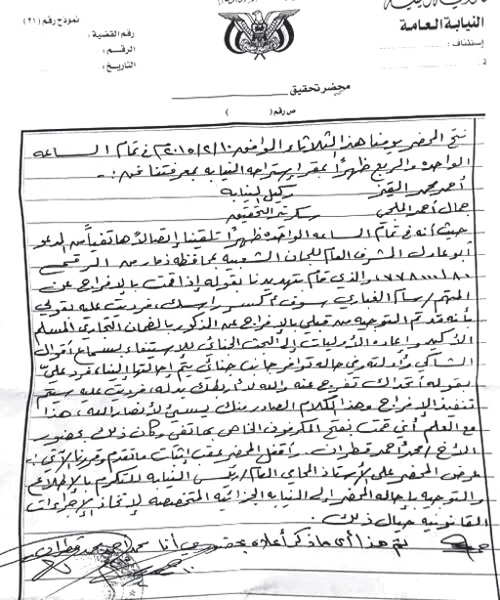 نموذج رقم (٢١)
النيابة العامة
رقم القضية :
إستئناف :
الرقم :
التاريخ :
محضر تحقيق
ص رقم ( )
فتح المحضر يومنا هذا الثلاثاء الموافق ١٠/٢/٢٠١٥م في تمام الساعه
الواحده والربع ظهراً بمقر إستراحه النيابه بمعرفتنا نحن :-
أحمد محمد وكيل النيابه
جمال أحمد سكرتير التحقيق
حيث أنه في تمام الساعه الواحده ظهراً تلقينا إتصالاً هاتفياً من المدعو
أبو عادل المشرف العام للجان الشعبيه بمحافظه ذمار من الرقم
والذي قام بتهديدنا بقوله إذا قمت بالإفراج عن
المتهم / بسام الغباري سوف أكسر راسك فرديت عليه بقولي
بأنه قد تم التوجيه من قبلي بالإفراج عنه المذكور بالضمان التجاري المسلم
الأكيد وإعاده الأوليات إلى البحث الجنائي للإستيفاء بسماع أقوال
الشاكي وأدلته وفي حاله توافر جانب جنائي يتم إحالتها إلينا، فرد عليّ
بقوله تفرج عنه والله بدله، فرديت عليه سيتم
تنفيذ الإفراج وهذا الكلام الصادر منك يسيئ لأنصار الله، هذا
مع العلم أني قمت بفتح المكرفون الخاص بهاتفي وكان ذلك بحضور
الأخ / محمد أحمد قطران. وأقفل المحضر عقب إثبات ما تقدم وقررنا الآتي:
عرض المحضر على الأستاذ المحامي العام / رئيس النيابه للتكرم بالإطلاع
والتوجيه بإحاله المحضر إلى النيابه الجزائيه المتخصصه لإتخاذ الإجراءات
القانونيه حيال ذلك.
تم هذا أي ما ذكر أعلاه بحضوري أنا محمد أحمد محمد قطران